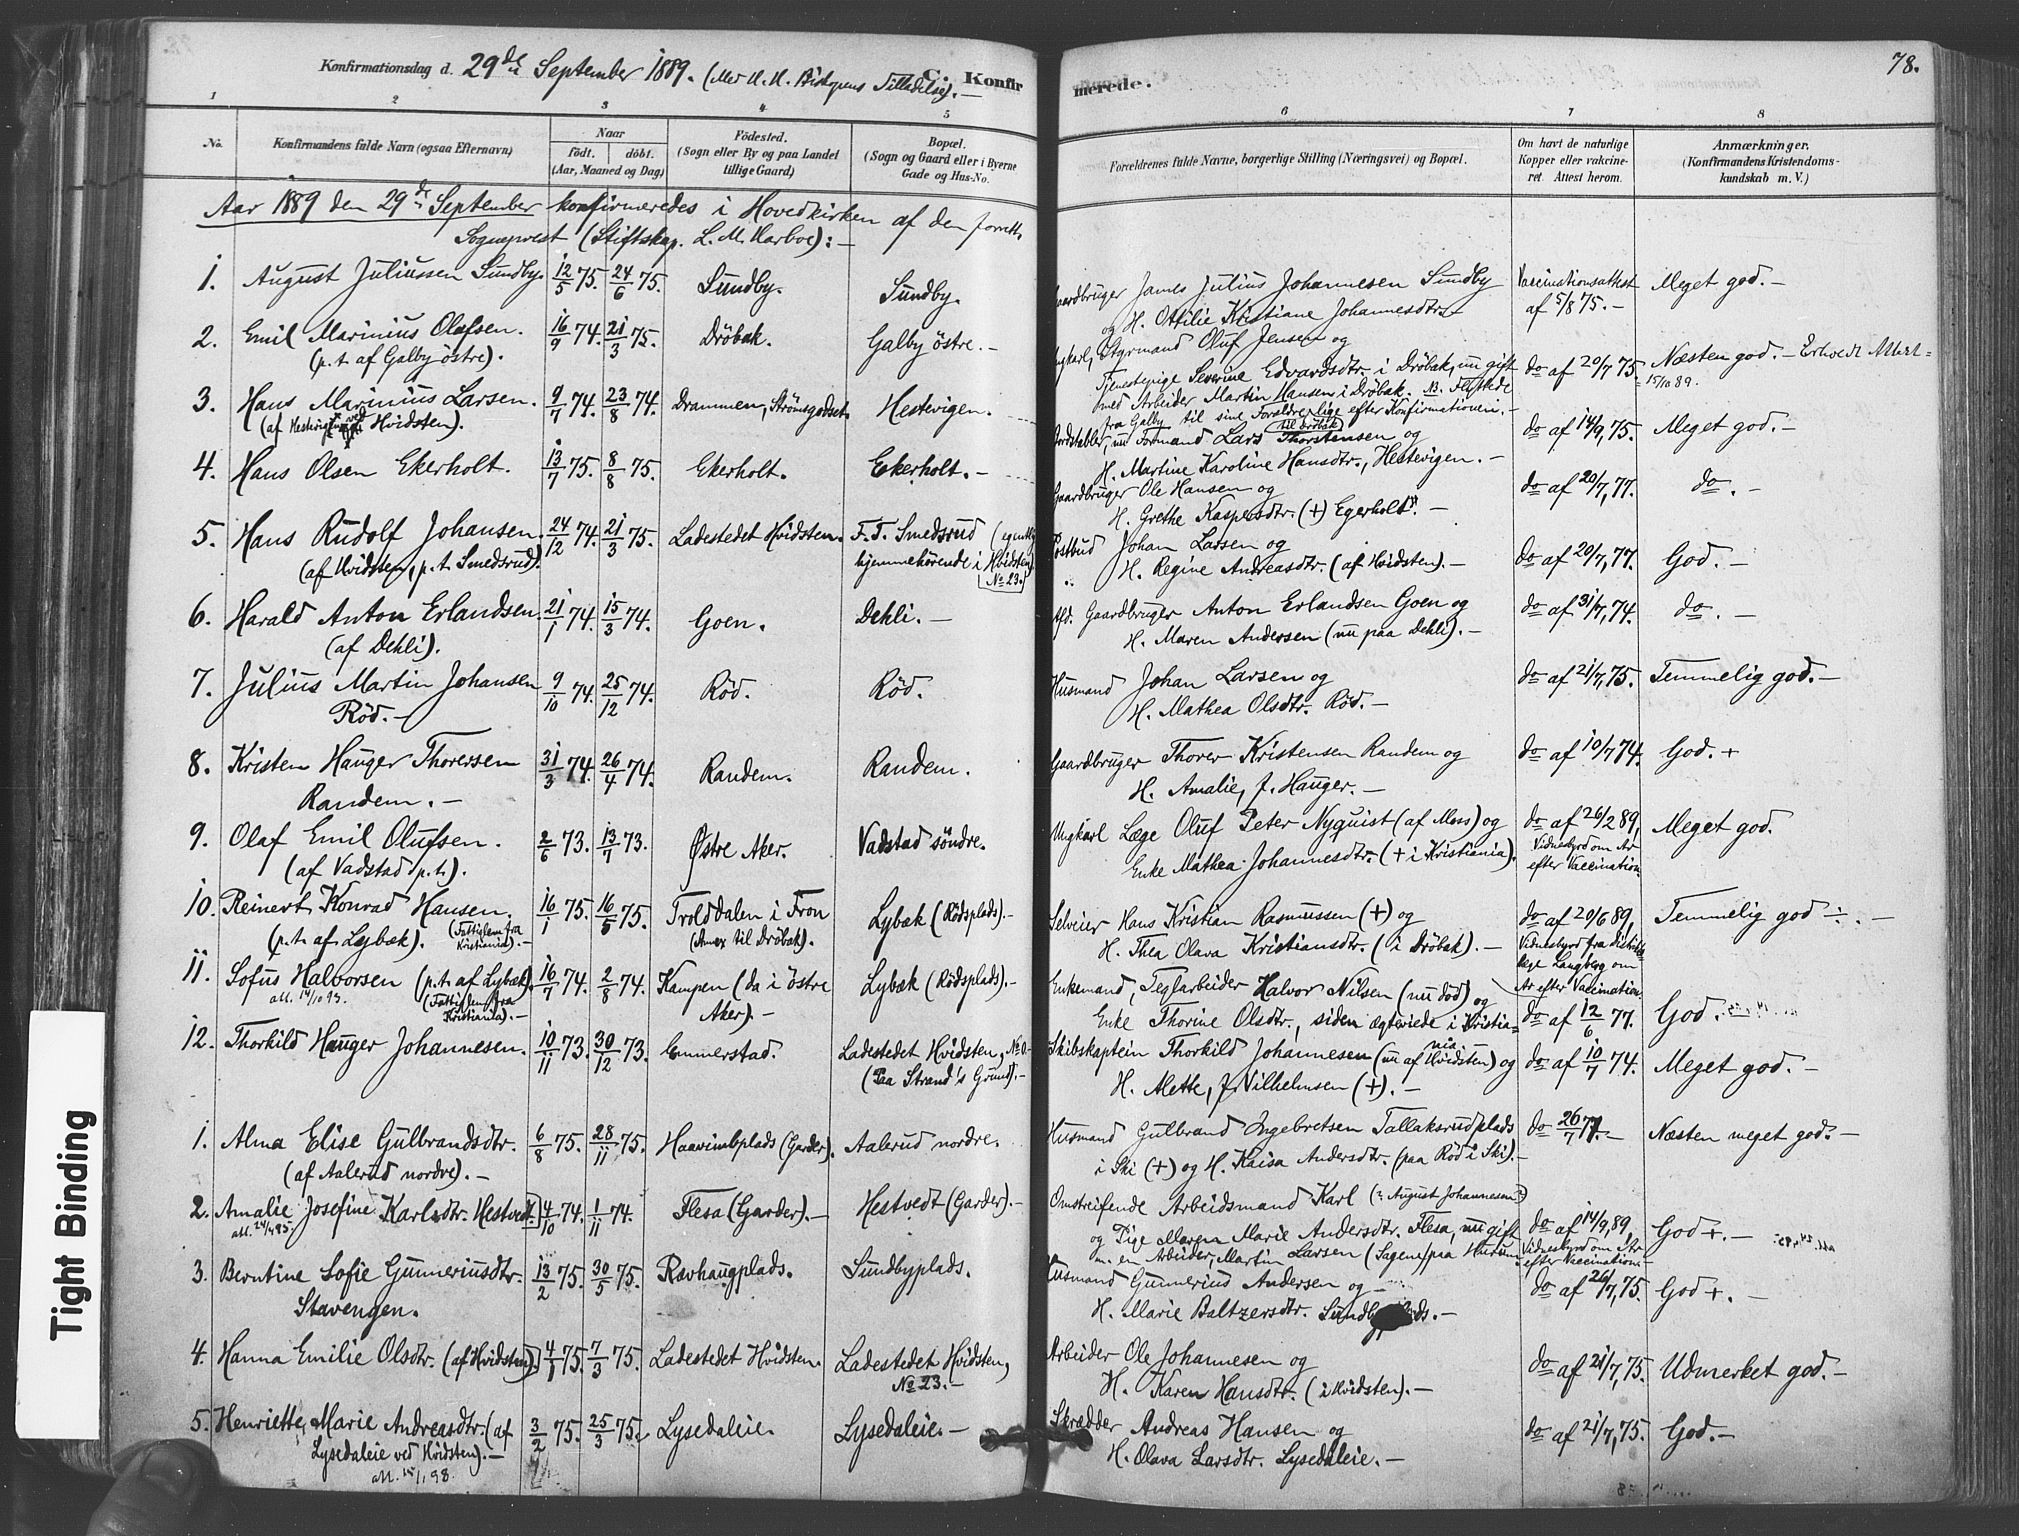 78.
Konfirmationsdag d. 29de September 1889. (Med H. H. Biskopens Tilladelse). —
C. Konfirmerede.
1 2 3 4 5 6 7 8
No.
Konfirmandens fulde Navn (ogsaa Efternavn)
Naar
födt. döbt.
(Aar, Maaned og Dag)
Födested.
(Sogn eller By og paa Landet
tillige Gaard)
Bopæl.
(Sogn og Gaard eller i Byerne
Gade og Hus-No.
Forældrenes fulde Navne, borgerlige Stilling (Næringsvei) og Bopæl.
Om havt de naturlige
Kopper eller vakcine-
ret. Attest herom.
Anmærkninger.
(Konfirmandens Kristendoms-
kundskab m. V.)
Aar 1889 den 29de September konfirmeredes i Hovedkirken af den forrett.
Sogneprest (Stiftskap. L. M. Harboe): —
1. August Juliussen Sundby. 12/5 75. 24/6 75. Sundby. Sundby.
Gaardbruger James Julius Johannesen Sundby
og H. Ottilie Kristiane Johannesdtr. —
Vaccinationsattest
af 5/8 75. —
Meget god. —
2. Emil Marinius Olafsen.
(p.t. af Galby östre).
16/9 74. 21/3 75. Dröbak. Galby östre. —
Ungkarl, Styrmand Oluf Jensen og
Tjenestepige Severine Edvardsdtr. i Dröbak, nu gift
med Arbeider Martin Hansen i Dröbak. NB. Flyttede
fra Galby til sine Forældre lige efter Konfirmationen. —
til Dröbak
do af 20/7 75.
Næsten god. — Erholdt Attest
15/10 89.
3. Hans Marinius Larsen.
(af Hestvigen ved Hvidsten).
9/7 74. 23/8 74. Drammen, Strömsgodset. Hestevigen.
nu Formand Lars Thorstensen og
H. Martine Karoline Hansdtr., Hestevigen. —
do af 14/9, 75. Meget god. —
4. Hans Olsen Ekerholt. 13/7 75. 8/8 75. Ekerholt. Ekerholt. —
Gaardbruger Ole Hansen og
H. Grethe Kaspersdtr. (+) Egerholt. —
do af 20/7, 77. do. —
5. Hans Rudolf Johansen.
(af Hvidsten, p.t. Smedsrud).
24/12 74. 21/3 75. Ladestedet Hvidsten. F. T. Smedsrud (egentlig
hjemmehörende i Hvidsten
No 23.)
Postbud Johan Larsen og
H. Regine Andreasdtr. (af Hvidsten). —
do af 20/7, 77. God. —
6. Harald Anton Erlandsen.
(af Dehli).
21/1 74. 15/3 74. Goen. Dehli. —
Afd. Gaardbruger Anton Erlandsen Goen og
H. Maren Andersen (nu paa Dehli). —
do af 31/7, 74. do. —
7. Julius Martin Johansen
Röd. —
9/10 74. 25/12 74. Röd. Röd.
Husmand Johan Larsen og
H. Mathea Olsdtr. Röd. —
do af 21/7, 75. Temmelig god. —
8. Kristen Hauger Thoresen
Randem. —
31/3 74. 26/4 74. Randem. Randem.
Gaardbruger Thorer Kristensen Randem og
H. Amalie, f. Hauger. —
do af 10/7 74. God. +
9. Olaf Emil Olufsen.
(af Vadstad p.t.).
2/6 73. 13/7 73. Østre Aker. Vadstad söndre.
Ungkarl Læge Oluf Peter Nyquist (af Moss) og
Enke Mathea Johannesdtr. (+ i Kristiania).
do af 26/2 89,
Vidnesbyrd om Ar
efter Vaccination
Meget god.
10. Reinert Konrad Hansen.
(p.t. af Lybæk). (Fattiglem fra
Kristiania). —
16/1 75. 16/5 75. Trolddalen i Fron
(Anex til Dröbak).
Lybæk (Rödsplads). —
Selveier Hans Kristian Rasmussen (+) og
H. Thea Olava Kristiansdtr. (i Dröbak). —
do af 20/6 89,
Vidnesbyrd fra Distrikts-
læge Langberg om
Ar efter Vaccination.
Temmelig god ÷. —
11. Sofus Halvorsen (p.t. af Lybæk).
att. 14/10 93. (Fattiglem fra
Kristiania). —
16/7 74. 2/8 74. Kampen (da i östre
Aker). —
Lybæk (Rödsplads). —
Enkemand, Teglarbeider Halvor Nilsen (nu död) og
Enke Thorine Olsdtr., siden ægteviede i Kristia-
nia
do af 12/6 77. God. —
12. Thorkild Hauger Johannesen. 10/11 73. 30/12 73. Emmerstad. Ladestedet Hvidsten, No
(Paa Strand's Grund). —
Skibskaptein Thorkild Johannesen (nu af Hvidsten) og
H. Alette, f. Vilhelmsen (+). —
do af 10/7 74. Meget god. —
1. Alma Elise Gulbrandsdtr.
(af Aalerud nordre). —
6/8 75. 28/11 75. Haavimbplads (Garder). Aalerud nordre.
Husmand Gulbrand Ingebretsen Tallaksrudplads
i Ski (+) og H. Kaisa Andersdtr. (paa Röd i Ski). —
do 26/7 77. — Næsten meget god. —
2. Amalie Josefine Karlsdtr. Hestvedt.
att. 24/4 95.
4/10 74. 1/11 74. Flesa (Garder). — Hestvedt (Garder). —
Omstreifende Arbeidsmand Karl (? August Johannesen?)
og Pige Maren Marie Andersdtr. Flesa, nu gift
m. en Arbeider, Martin Larsen (Sagen) paa Hurum
do af 14/9, 89,
Vidnesbyrd om Ar
efter Vaccination
God +. —
3. Berntine Sofie Gunneriusdtr.
Stavengen.
13/2 75. 30/5 75. Rævhaugplads. Sundbyplads.
Husmand Gunnerius Andersen og —
H. Marie Baltzersdtr. Sundbyplads. —
do af 26/7, 75. God +. —
4. Hanna Emilie Olsdtr. (af Hvidsten). 4/1 75. 7/3 75. Ladestedet Hvidsten. Ladestedet Hvidsten,
No 23. —
Arbeider Ole Johannesen og
H. Karen Hansdtr. (i Hvidsten). —
do af 21/7, 75. Udmerket god. —
5. Henriette Marie Andreasdtr. (af
Lysedaleie ved Hvidsten). —
att. 15/1, 98.
3/2 75. 25/3 75. Lysedaleie. Lysedaleie. —
Skrædder Andreas Hansen og
H. Olava Larsdtr. Lysedaleie. —
do af 21/7, 75. God. —
Tight Binding